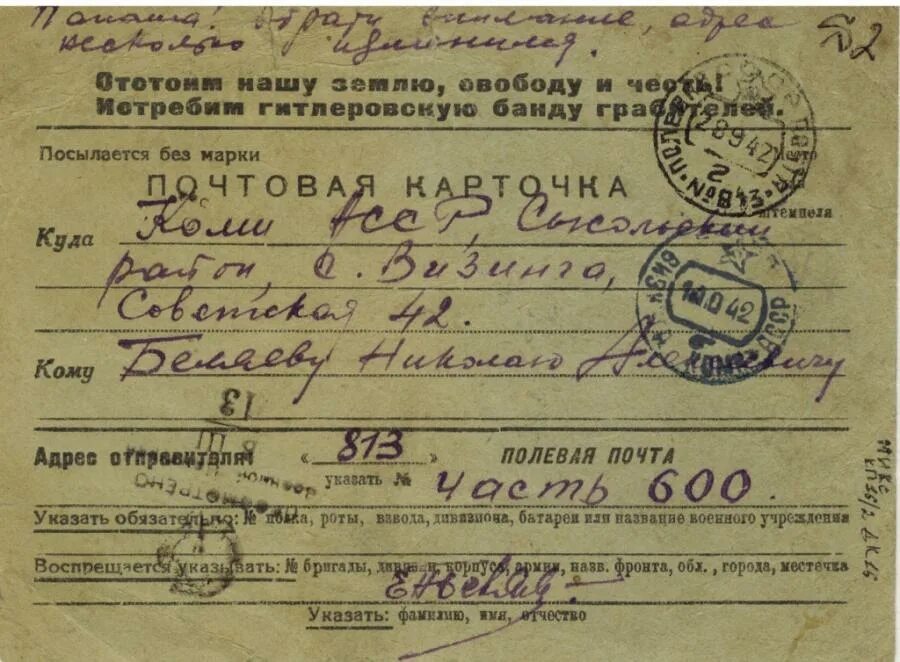 Папаша! Обрати внимание, адрес
несколько изменился.
2
Отстоим нашу землю, свободу и честь!
Истребим гитлеровскую банду грабителей.
Посылается без марки
Место
ПОЧТОВАЯ КАРТОЧКА
штемпеля
28 9 42
2
Куда Коми АССР, Сысольский
район с. Визинга,
Советская 42.
10.10 42
КОМИ АССР
Кому Беляеву Николаю Алексеевичу
13
Адрес отправителя: « 813 ПОЛЕВАЯ ПОЧТА
указать № часть 600.
ПРОСМОТРЕНО
Военной
Указать обязательно: № полка, роты, взвода, дивизиона, батареи или название военного учреждения
Воспрещается указывать: № бригады, дивизии, корпуса, армии, назв. фронта, обл., города, местечка
Указать: фамилию, имя, отчество
МИКС